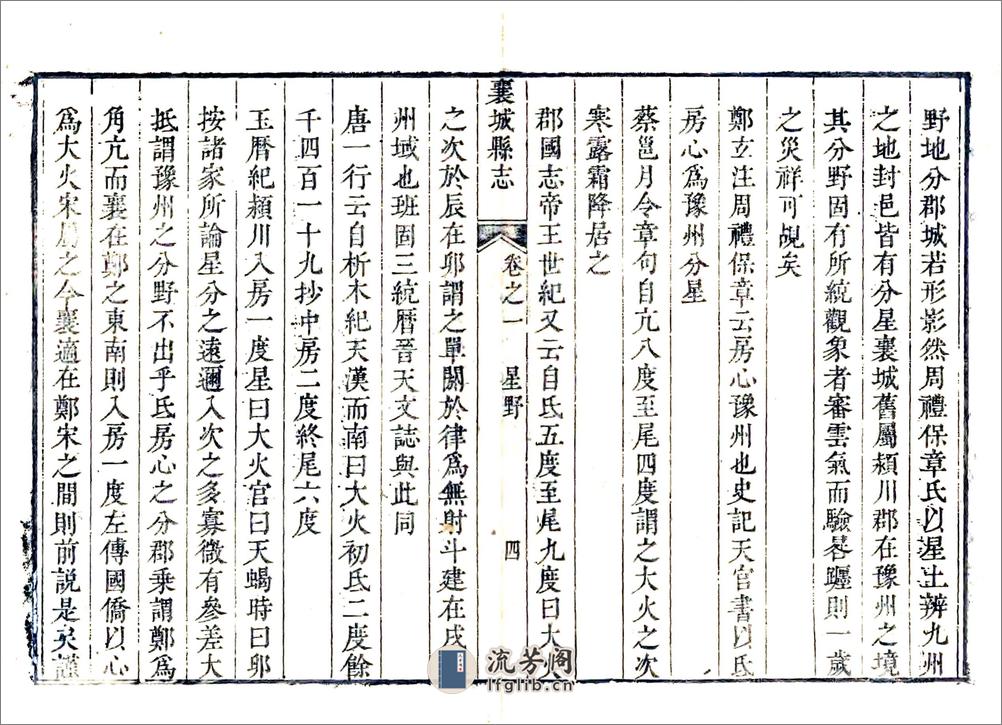 野地分郡城若形影然周禮保章氏以星土辨九州
之地封邑皆有分星襄城舊屬潁川郡在豫州之境
其分野固有所統觀象者審雲氣而驗晷躔則一歲
之災祥可覘矣
鄭玄注周禮保章云房心豫州也史記天官書以氐
房心爲豫州分星
蔡邕月令章句自亢八度至尾四度謂之大火之次
寒露霜降居之
郡國志帝王世紀又云自氐五度至尾九度曰大火
之次於辰在卯謂之單閼於律爲無射斗建在戌
襄城縣志
卷之一
星野
四
州域也班固三統曆晉天文誌與此同
唐一行云自析木紀天漢而南曰大火初氐二度餘
千四百一十九抄中房二度終尾六度
玉曆紀潁川入房一度星曰大火官曰天蝎時曰卯
按諸家所論星分之遠邇入次之多寡微有參差大
抵謂豫州之分野不出乎氐房心之分郡乗謂鄭爲
角亢而襄在鄭之東南則入房一度左傳國僑以心
爲大火宋屬之今襄適在鄭宋之間則前説是矣謹
流芳阁
lfglib.cn